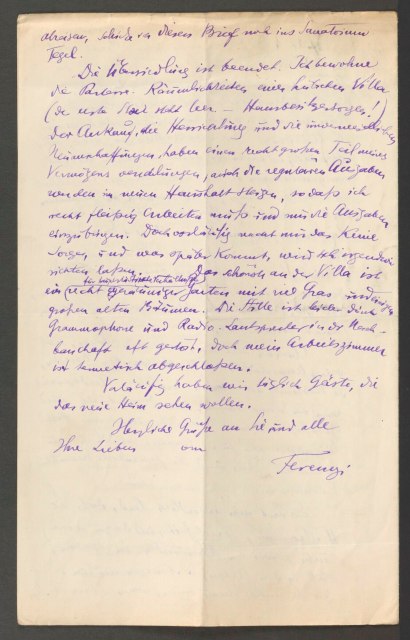 abreisen, schicke ich diesen Brief noch ins Sanatorium
Tegel.
Die Übersiedlung ist beendet. Ich bewohne
die Parterre-Räumlichkeiten einer hübschen Villa
(der erste Stock steht leer – Hausbesitzersorgen!)
Der Ankauf, die Herrichtung und die unvermeidlichen
Neuanschaffungen haben einen recht großen Teil meines
Vermögens verschlungen, auch die regulären Ausgaben
werden im neuen Haushalt steigen, so daß ich
recht fleißig arbeiten muß um nur die Ausgaben
einzubringen. Doch vorläufig macht mir das keine
Sorgen und was später kommt, wird sich irgendwie
richten lassen. Das schönste an der Villa ist
ein für hauptstädtische Verhältnisse recht geräumiger Garten mit viel Gras und einigen
großen alten Bäumen. Die Stille ist leider durch
Grammophone und Radio-Lautsprecher in der Nach-
barschaft oft gestört, doch mein Arbeitszimmer
ist hermetisch abgeschlossen.
Vorläufig haben wir täglich Gäste, die
das neue Heim sehen wollen.
Herzliche Grüße an Sie und alle
Ihre Lieben von
Ferenczi